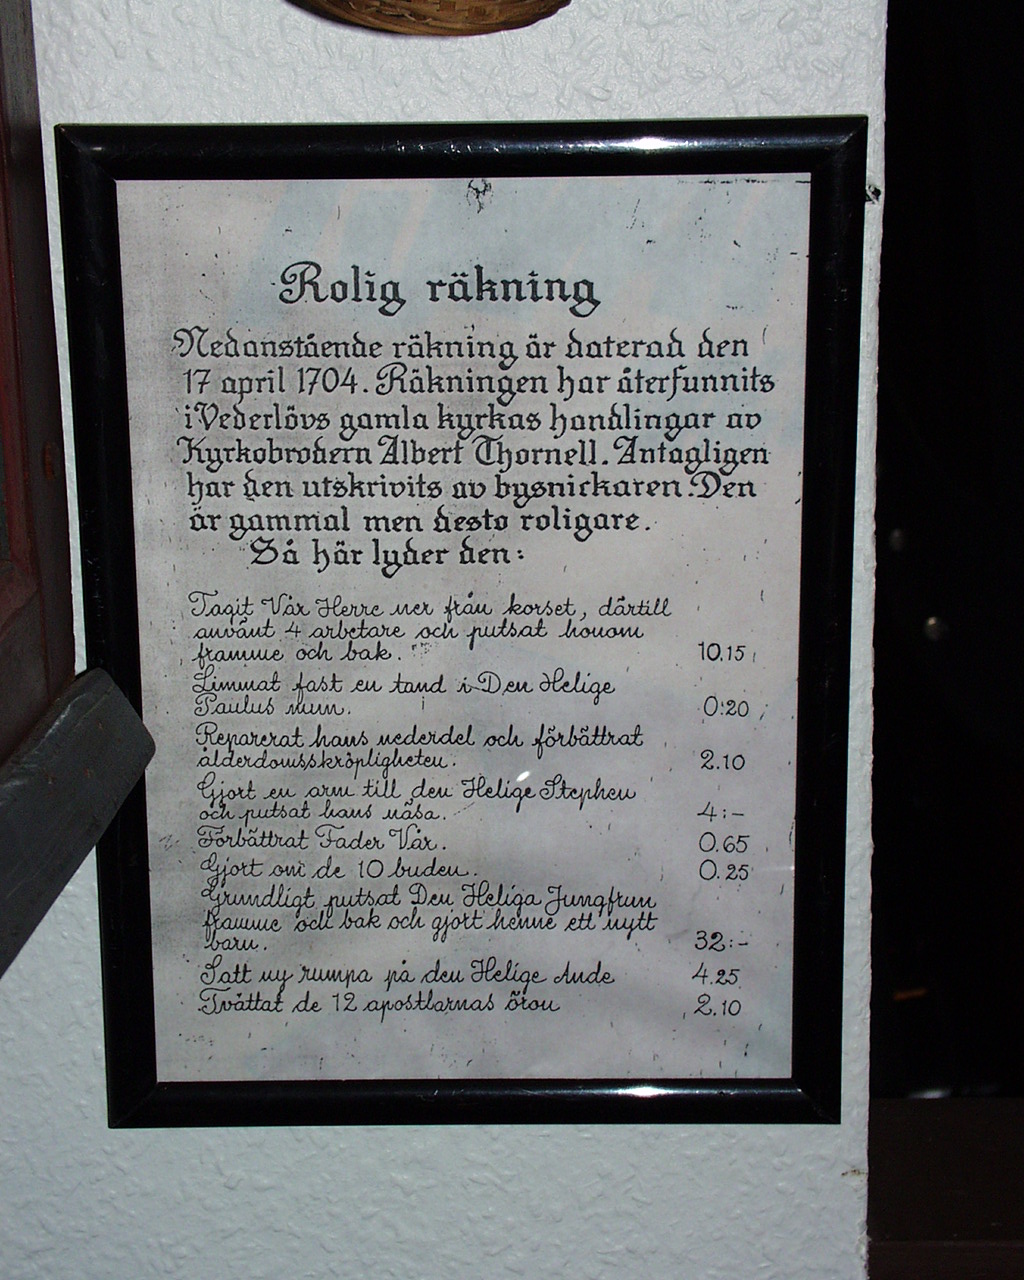 Rolig räkning
Nedanstående räkning är daterad den
17 april 1704. Räkningen har återfunnits
i Vederlövs gamla kyrkas handlingar av
Kyrkobrodern Albert Thornell. Antagligen
har den utskrivits av bysnickaren. Den
är gammal men desto roligare.
Så här lyder den:
Tagit Vår Herre ner från korset, därtill
använt 4 arbetare och putsat honom
framme och bak. 10.15
Limmat fast en tand i Den Helige
Paulus mun. 0:20
Reparerat hans nederdel och förbättrat
ålderdomsskröpligheten. 2.10
Gjort en arm till den Helige Stephen
och putsat hans näsa. 4:-
Förbättrat Fader Vår. 0.65
Gjort om de 10 buden. 0.25
Grundligt putsat Den Heliga Jungfrun
framme och bak och gjort henne ett nytt
barn. 32:-
Satt ny rumpa på den Helige Ande 4.25
Tvättat de 12 apostlarnas öron 2.10